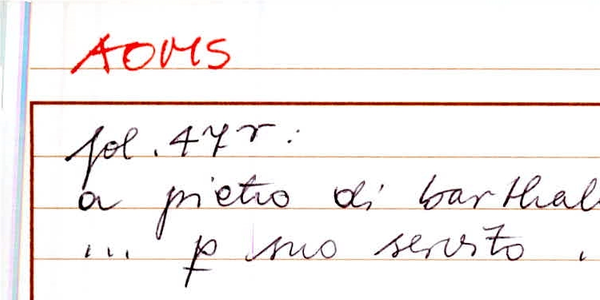 AOMS
fol. 47r:
a pietro di barthal
... p suo servito .